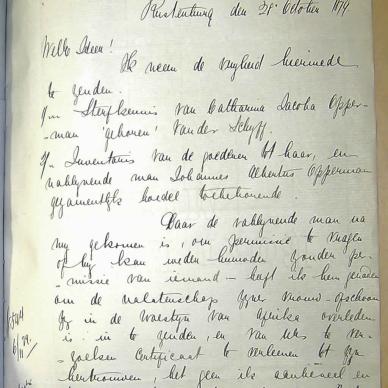 Rustenburg den 28 October 1879
Welke Heer!
Ik neem de vryheid hiermede
te zenden.
1/n Sterfkennis van Catharina Jacoba Opper-
-man 'geboren' Van der Schyff.
2/n Inventaris van de goederen tot haar, en
nablyvende man Johannes Albertus Opperman
gezamentlyk boedel toebehoorende.
Daar de nablyvende man na
my gekomen is, om permissie te vragen
of hy kan weder huwen zonder per-
-missie van iemand - heb ik hem geraden
om de nalatenschap zyne vrouw - opschoon
zy in de Woestyn van Afrika overleden
is - in te zenden, en van ons te ver-
-zoeken Certificaat te verleenen tot zyn
hertrouwen; het geen ik aanbeveel en